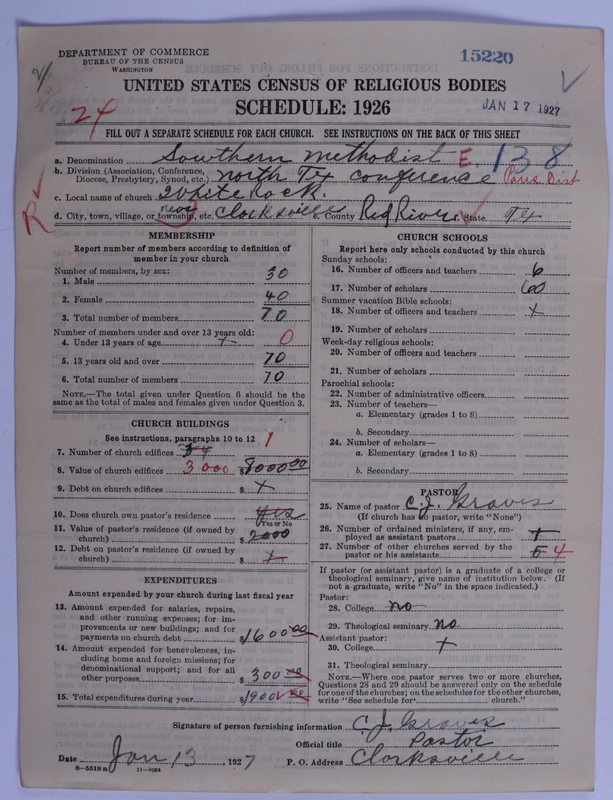 DEPARTMENT OF COMMERCE
BUREAU OF THE CENSUS
WASHINGTON
15220
UNITED STATES CENSUS OF RELIGIOUS BODIES
SCHEDULE: 1926
JAN 17 1927
24
FILL OUT A SEPARATE SCHEDULE FOR EACH CHURCH. SEE INSTRUCTIONS ON THE BACK OF THIS SHEET
a. Denomination Southern Methodist E. 138
b. Division (Association, Conference, Diocese, Presbytery, Synod, etc.) North Tex Conference Paris Dist
c. Local name of church White Rock
R
d. City, town, village, or township, etc. near Clarksville e. County Red River f. State Tex
MEMBERSHIP
Report number of members according to definition of
member in your church
Number of members, by sex:
1. Male 30
2. Female 40
3. Total number of members 70
Number of members under and over 13 years old:
4. Under 13 years of age + 0
5. 13 years old and over 70
6. Total number of members 70
NOTE.—The total given under Question 6 should be the
same as the total of males and females given under Question 3.
CHURCH BUILDINGS
See instructions, paragraphs 10 to 12
7. Number of church edifices 1
8. Value of church edifices 3000 $800000
9. Debt on church edifices $ +
10. Does church own pastor's residence yes
(Yes or No)
11. Value of pastor's residence (if owned by
church) $2000
12. Debt on pastor's residence (if owned by
church) $ +
EXPENDITURES
Amount expended by your church during last fiscal year
13. Amount expended for salaries, repairs,
and other running expenses; for im-
provements or new buildings; and for
payments on church debt $1600 00
14. Amount expended for benevolences, in-
cluding home and foreign missions; for
denominational support; and for all
other purposes $300 00
15. Total expenditures during year $1900 00
CHURCH SCHOOLS
Report here only schools conducted by this church
Sunday schools:
16. Number of officers and teachers 6
17. Number of scholars 60
Summer vacation Bible schools:
18. Number of officers and teachers +
19. Number of scholars
Week-day religious schools:
20. Number of officers and teachers
21. Number of scholars
Parochial schools:
22. Number of administrative officers
23. Number of teachers—
a. Elementary (grades 1 to 8)
b. Secondary
24. Number of scholars—
a. Elementary (grades 1 to 8)
b. Secondary
PASTOR
25. Name of pastor C. J. Graves
(If church has no pastor, write "None")
26. Number of ordained ministers, if any, em-
ployed as assistant pastors +
27. Number of other churches served by the
pastor or his assistants 5 4
If pastor (or assistant pastor) is a graduate of a college or
theological seminary, give name of institution below. (If
not a graduate, write "No" in the space indicated.)
Pastor:
28. College no
29. Theological seminary no
Assistant pastor:
30. College +
31. Theological seminary
NOTE.—Where one pastor serves two or more churches,
Questions 28 and 29 should be answered only on the schedule
for one of the churches; on the schedules for the other churches,
write "See schedule for church."
Signature of person furnishing information C. J. Graves
Official title Pastor
Date Jan 13, 1927 P. O. Address Clarksville
8—5518 a 11—9084